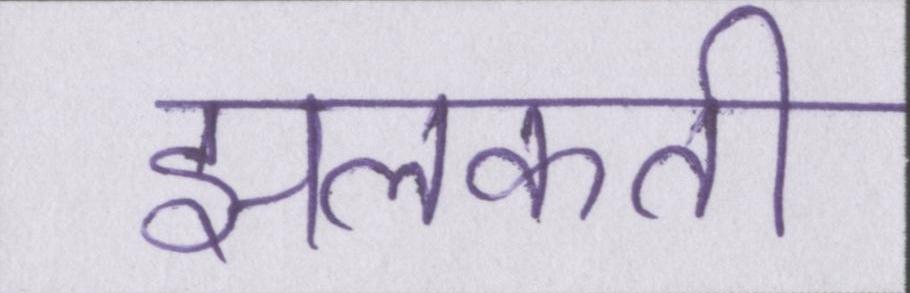 झलकती